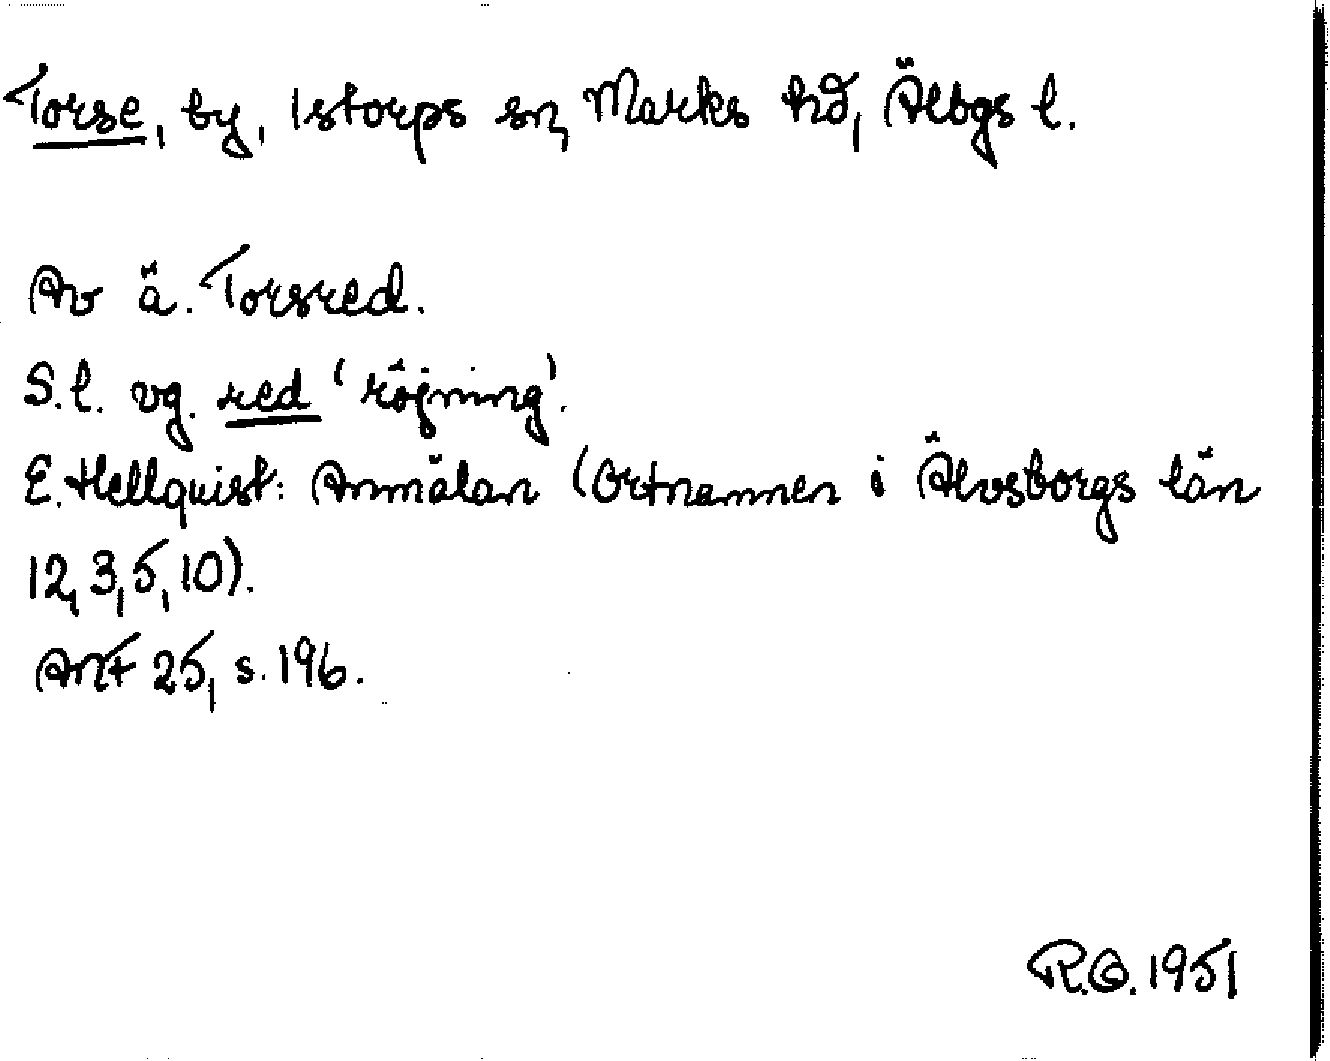 Torse, by, Istorps sn, Marks hd, Älvbgs l.
Av ä. Torsred.
S.l. vg. red 'röjning'.
E. Hellquist: Anmälan (Ortnamnen i Älvsborgs län
12, 3, 5, 10).
ANF 25, s. 196.
R.O. 1951